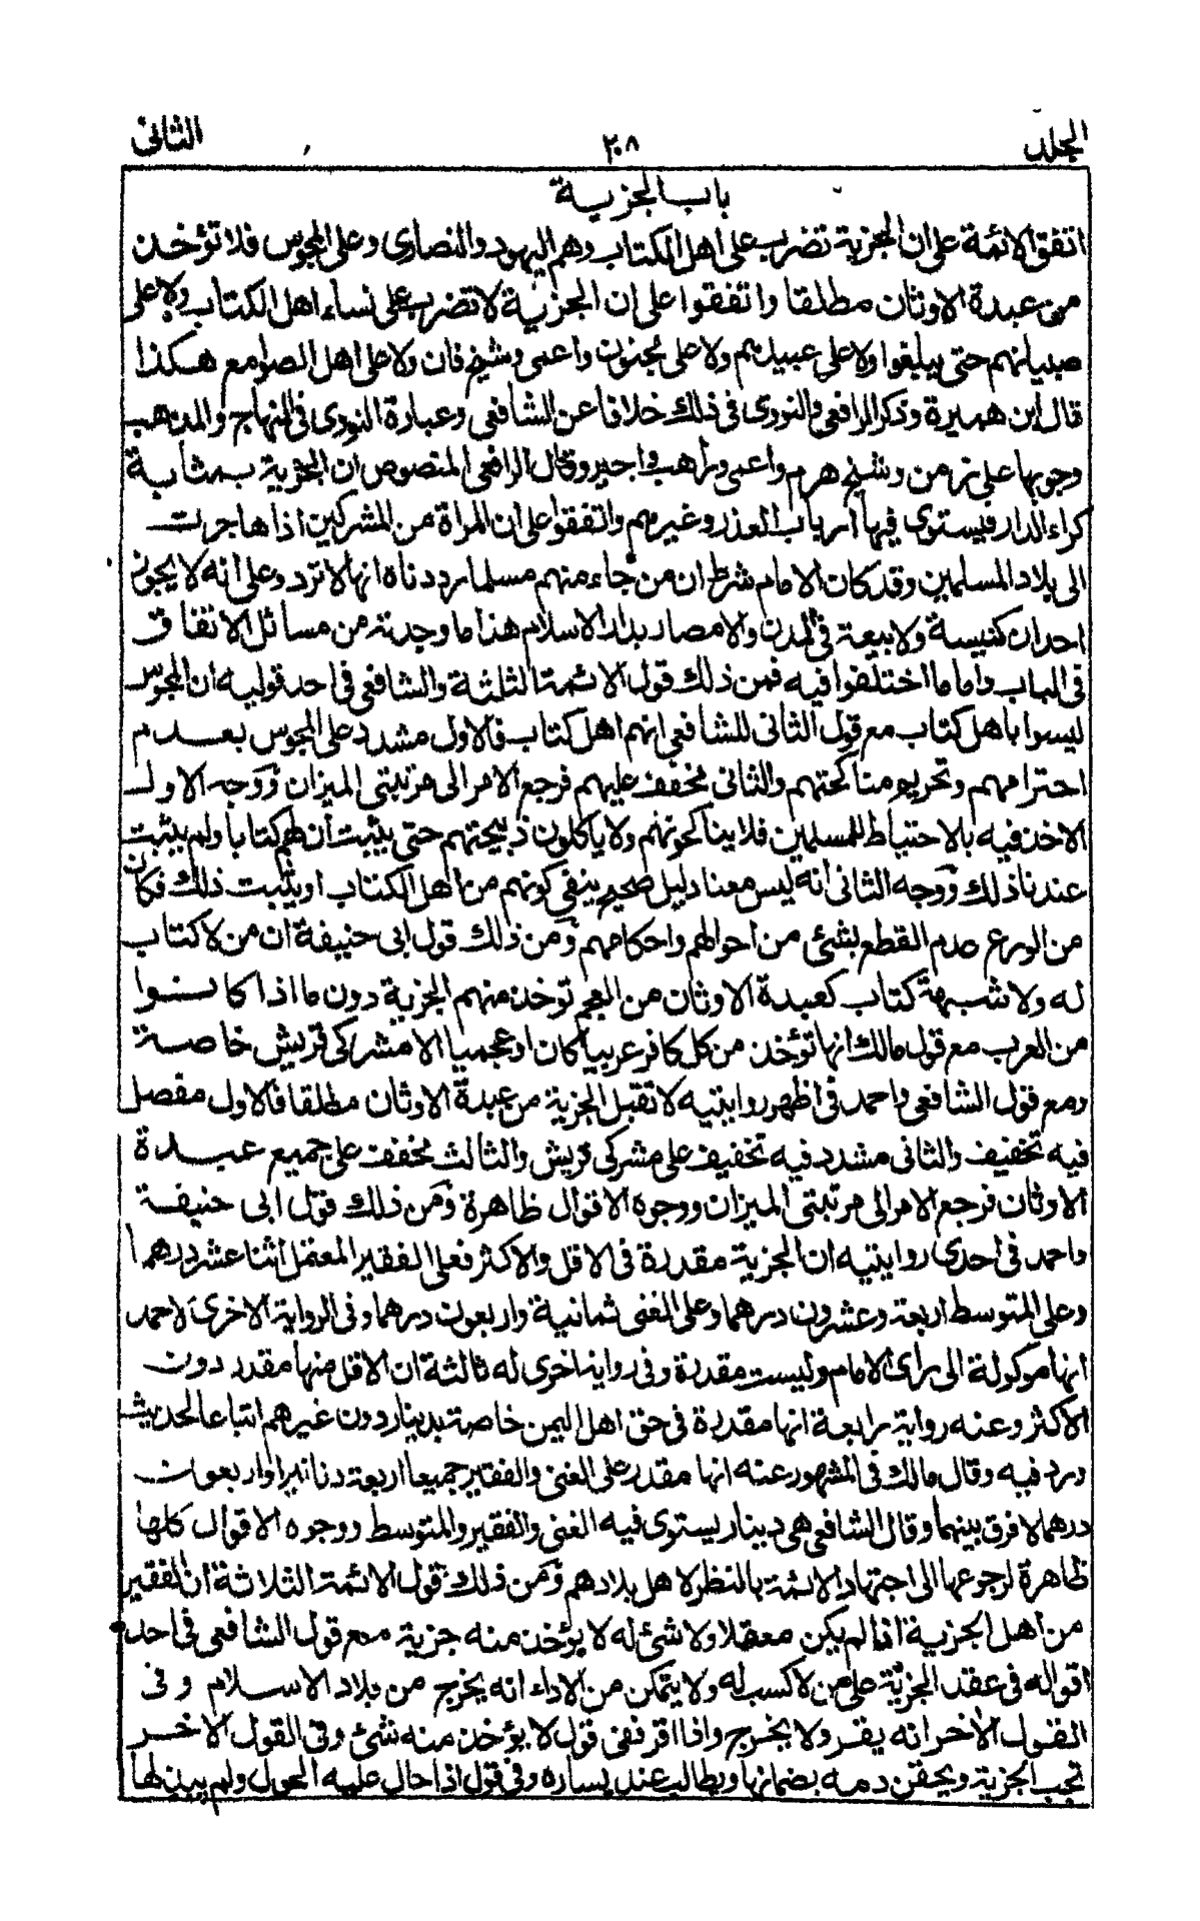 الجلد ٢٠٨ الثانى
باب الجزية
اتفق الائمة على ان الجزية تضرب على اهل الكتاب وهم اليهود والنصارى وعلى المجوس فلا تؤخذ
من عبدة الاوثان مطلقا واتفقوا على ان الجزية لا تضرب على نساء اهل الكتاب ولا على
صبيانهم حتى يبلغوا ولا على عبيدهم ولا على مجنون واعمى وشيخ فان ولا على اهل الصوامع هكذا
قال ابن هبيرة وذكر الرافعى والنووى فى ذلك خلافا عن الشافعى وعبارة النووى فى المنهاج والمذهب
وجوبها على زمن وشيخ هرم واعمى وراهب واجير وقال الرافعى المنصوص ان الجزية بمثابة
كراء الدار فيستوى فيها ارباب العذر وغيرهم واتفقوا على ان المراة من المشركين اذا هاجرت
الى بلاد المسلمين وقد كان الامام شرط ان من جاء منهم مسلما رددناه انها لا ترد وعلى انه لا يجوز
احداث كنيسة ولا بيعة فى المدن والامصار بدار الاسلام هذا ما وجدته من مسائل الاتفاق
فى الباب واما ما اختلفوا فيه فمن ذلك قول الائمة الثلثة والشافعى فى احد قوليه ان المجوس
ليسوا باهل كتاب مع قول الثانى للشافعى انهم اهل كتاب فالاول مشدد على المجوس بعدم
احترامهم وتحريم مناكحتهم والثانى مخفف عليهم فرجع الامر الى مرتبتى الميزان ووجه الاول
الاخذ فيه بالاحتياط للمسلمين فلا يناكحونهم ولا ياكلون ذبيحتهم حتى يثبت ان لهم كتابا ولم يثبت
عندنا ذلك ووجه الثانى انه ليس معنا دليل صحيح ينفى كونهم من اهل الكتاب او يثبت ذلك فكان
من الورع عدم القطع بشئ من احوالهم واحكامهم ومن ذلك قول ابى حنيفة ان من لا كتاب
له ولا شبهة كتاب كعبدة الاوثان من العجم توخذ منهم الجزية دون ما اذا كانوا
من العرب مع قول مالك انها تؤخذ من كل كافر عربيا كان او عجميا الا مشركى قريش خاصة
ومع قول الشافعى واحمد فى اظهر روايتيه لا تقبل الجزية من عبدة الاوثان مطلقا فالاول مفصل
فيه تخفيف والثانى مشدد فيه تخفيف على مشركى قريش والثالث مخفف على جميع عبدة
الاوثان فرجع الامر الى مرتبتى الميزان ووجوه الاقوال ظاهرة ومن ذلك قول ابى حنيفة
واحمد فى احدى روايتيه ان الجزية مقدرة فى الاقل والاكثر فعلى الفقير المعتمل اثنا عشر درهما
وعلى المتوسط اربعة وعشرون درهما وعلى الغنى ثمانية واربعون درهما وفى الرواية الاخرى لاحمد
انها موكولة الى راى الامام وليست مقدرة وفى رواية اخرى له ثالثة ان الاقل منها مقدر دون
الاكثر وعنه رواية رابعة انها مقدرة فى حق اهل اليمن خاصة بدينار دون غيرهم اتباعا لحديث
ورد فيه وقال مالك فى المشهور عنه انها مقدر على الغنى والفقير جميعا اربعة دنانير او اربعون
درهما لا فرق بينهما وقال الشافعى هى دينار يستوى فيه الغنى والفقير والمتوسط ووجوه الاقوال كلها
ظاهرة لرجوعها الى اجتهاد الائمة بالنظر لاهل بلادهم ومن ذلك قول الائمة الثلاثة ان الفقير
من اهل الجزية اذا لم يكن معتملا ولا شئ له لا يؤخذ منه جزية مع قول الشافعى فى احد
اقواله فى عقد الجزية على من لا كسب له ولا يتمكن من الاداء انه يخرج من بلاد الاسلام وفى
القول الاخر انه يقر ولا يخرج واذا اقر ففى قول لا يؤخذ منه شئ وفى القول الاخر
تجب الجزية ويحقن دمه بضمانها ويطالب عند يساره وفى قول اذا حال عليه الحول ولم يبذلها